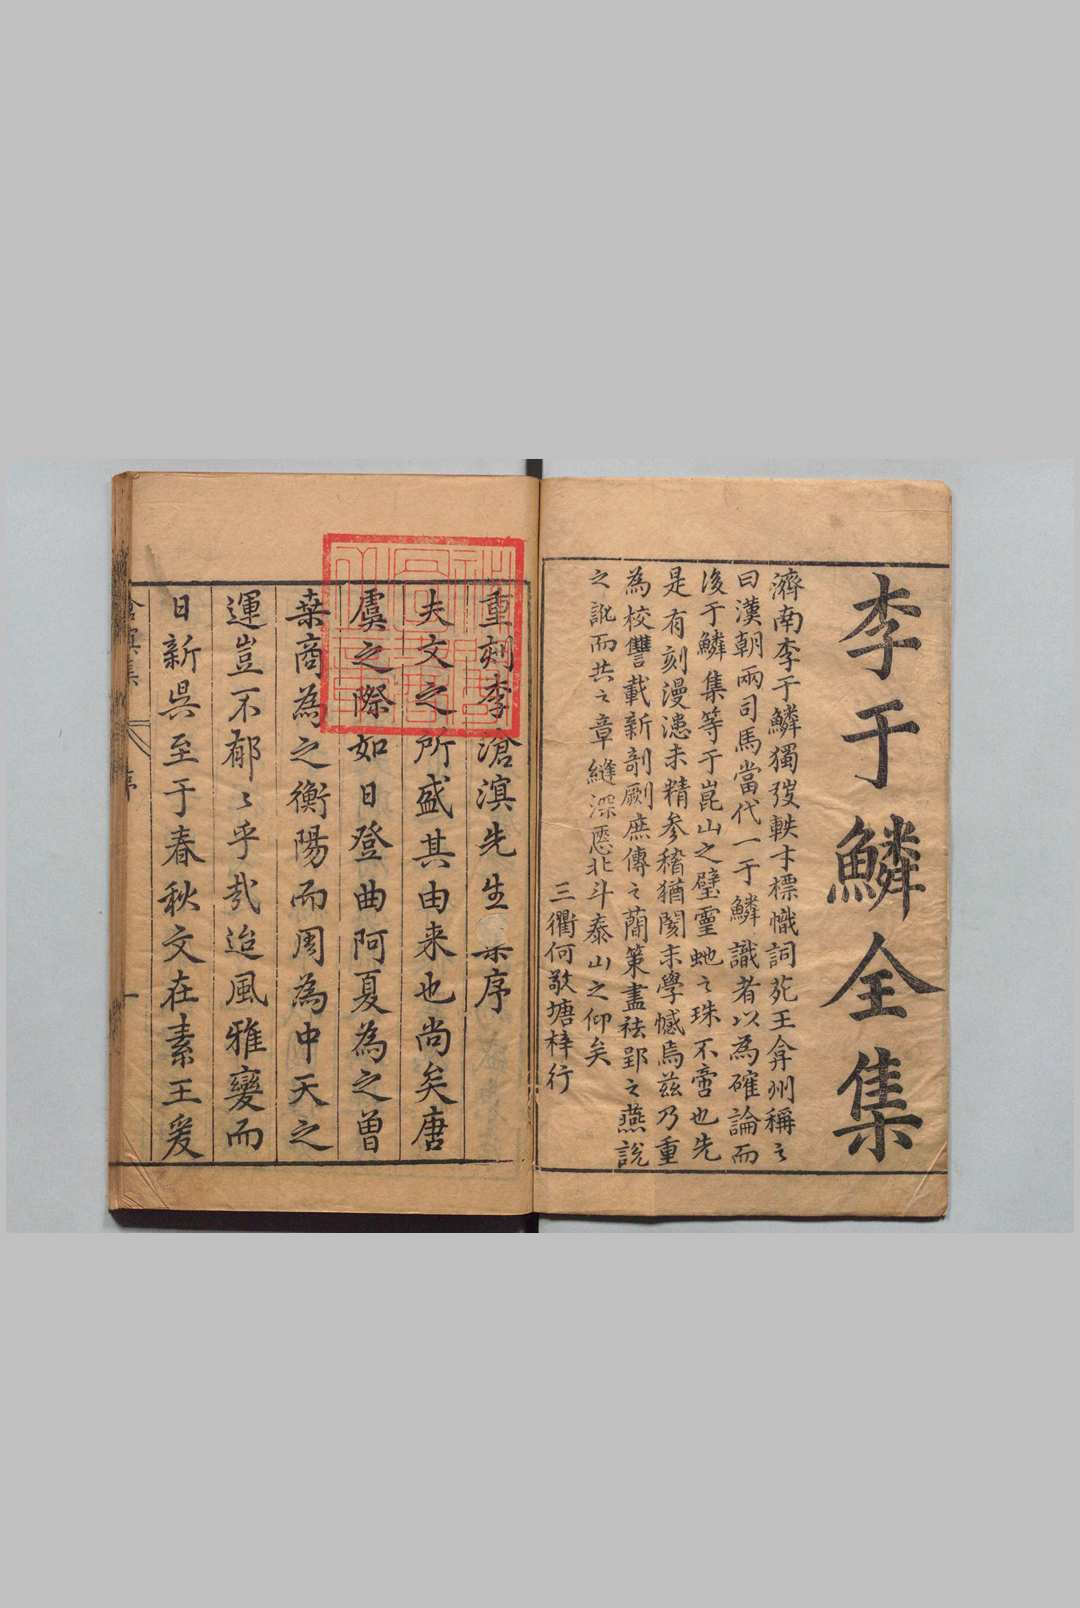 李于鱗全集
濟南李于鱗獨發軼才標幟詞苑王弇州稱之
曰漢朝兩司馬當代一于鱗識者以為確論而
後于鱗集等于崑山之璧靈虵之珠不啻也先
是有刻漫漶未精参稽猶閡末學憾焉兹乃重
為校讐載新剞劂庶傳之蕳策盡祛郢之燕說
之訛而共之章縫深愿北斗泰山之仰矣
三衢何敬塘梓行
重刻李滄溟先生集序
夫文之所盛其由来也尚矣唐
虞之際如日登曲阿夏為之曾
桒商為之衡陽而周為中天之
運豈不郁〻乎㢤迨風雅變而
日新吳至于春秋文在素王爰
滄溟集 序 一